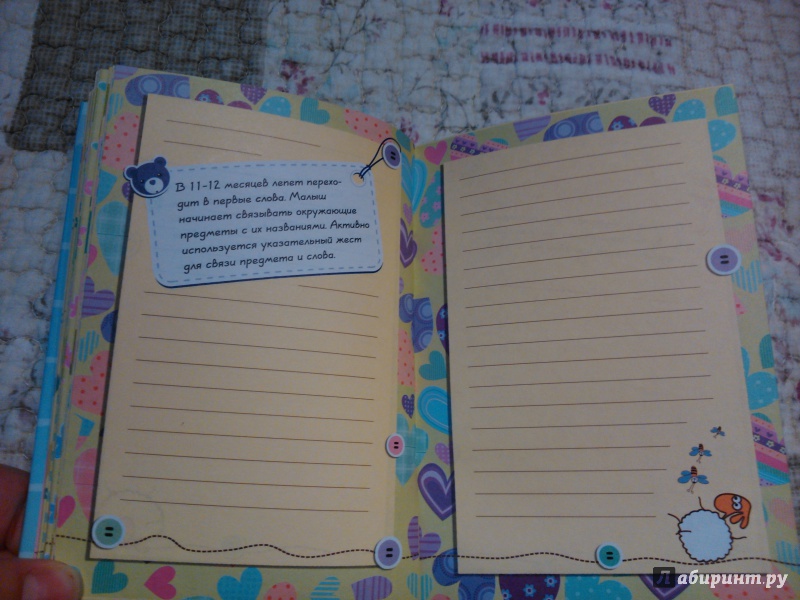 В 11-12 месяцев лепет перехо-
дит в первые слова. Малыш
начинает связывать окружающие
предметы с их названиями. Активно
используется указательный жест
для связи предмета и слова.
Лабиринт.ру